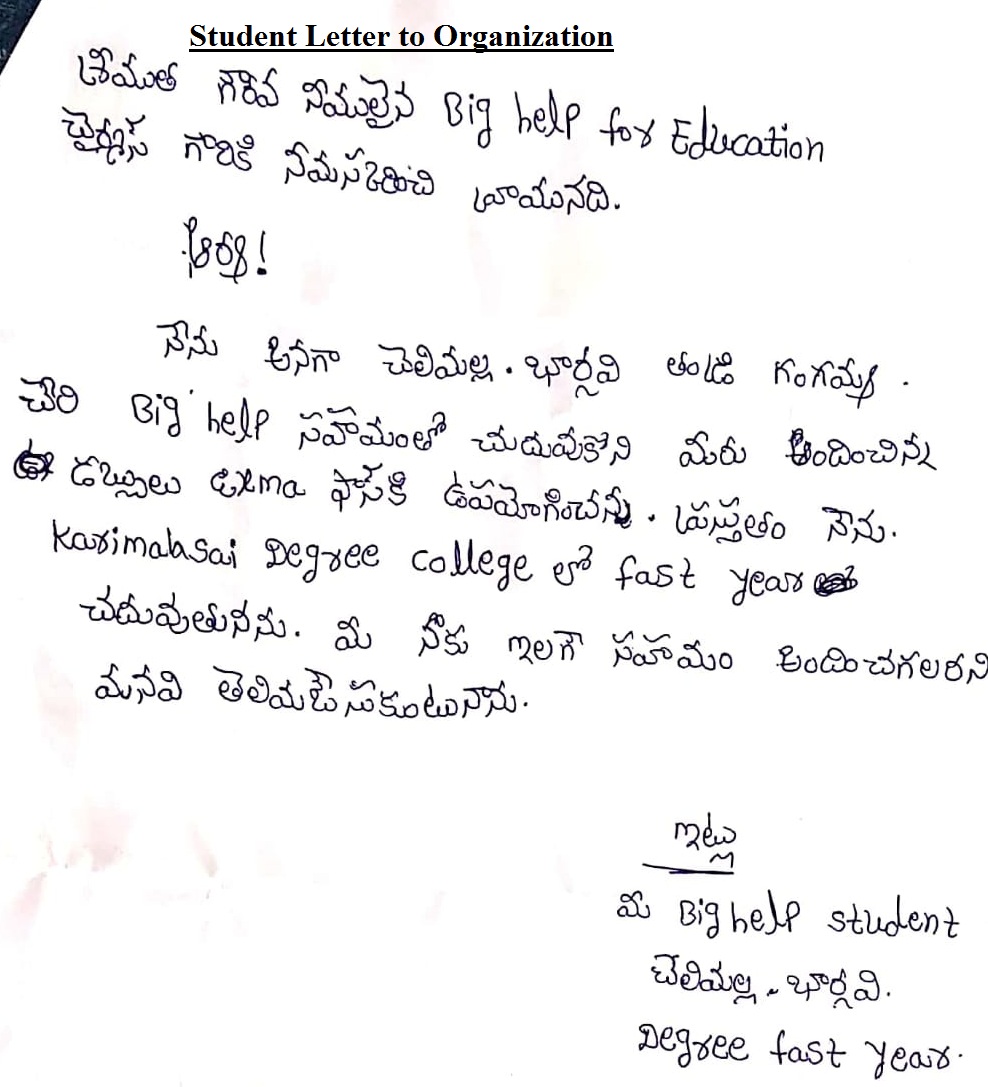 Student Letter to Organization
శ్రీయుత గౌరవ నీయులైన Big help for Education
చైర్మన్ గారికి నేమసకరించి వ్రాయునది.
ఆర్య!
నేను అనగా చెలిమల్ల. భార్గవి తండ్రి గంగయ్య.
చేరి Big help సహాయంతో చుదువుకోని మీరు అందించిన
డబ్బులు exma ఫాస్‌కి ఉపయోగించన్ను. ప్రస్తుతం నెను.
Karimahsai Degree college లో fast year
చదువుతునేను. మీ నాకు ఇలగె సహాయం అందించగలరని
మనవి తెలియచేసుకుంటునాను.
ఇట్లు
మీ Big help student
చెలిమల్ల. భార్గవి.
Degree fast year.